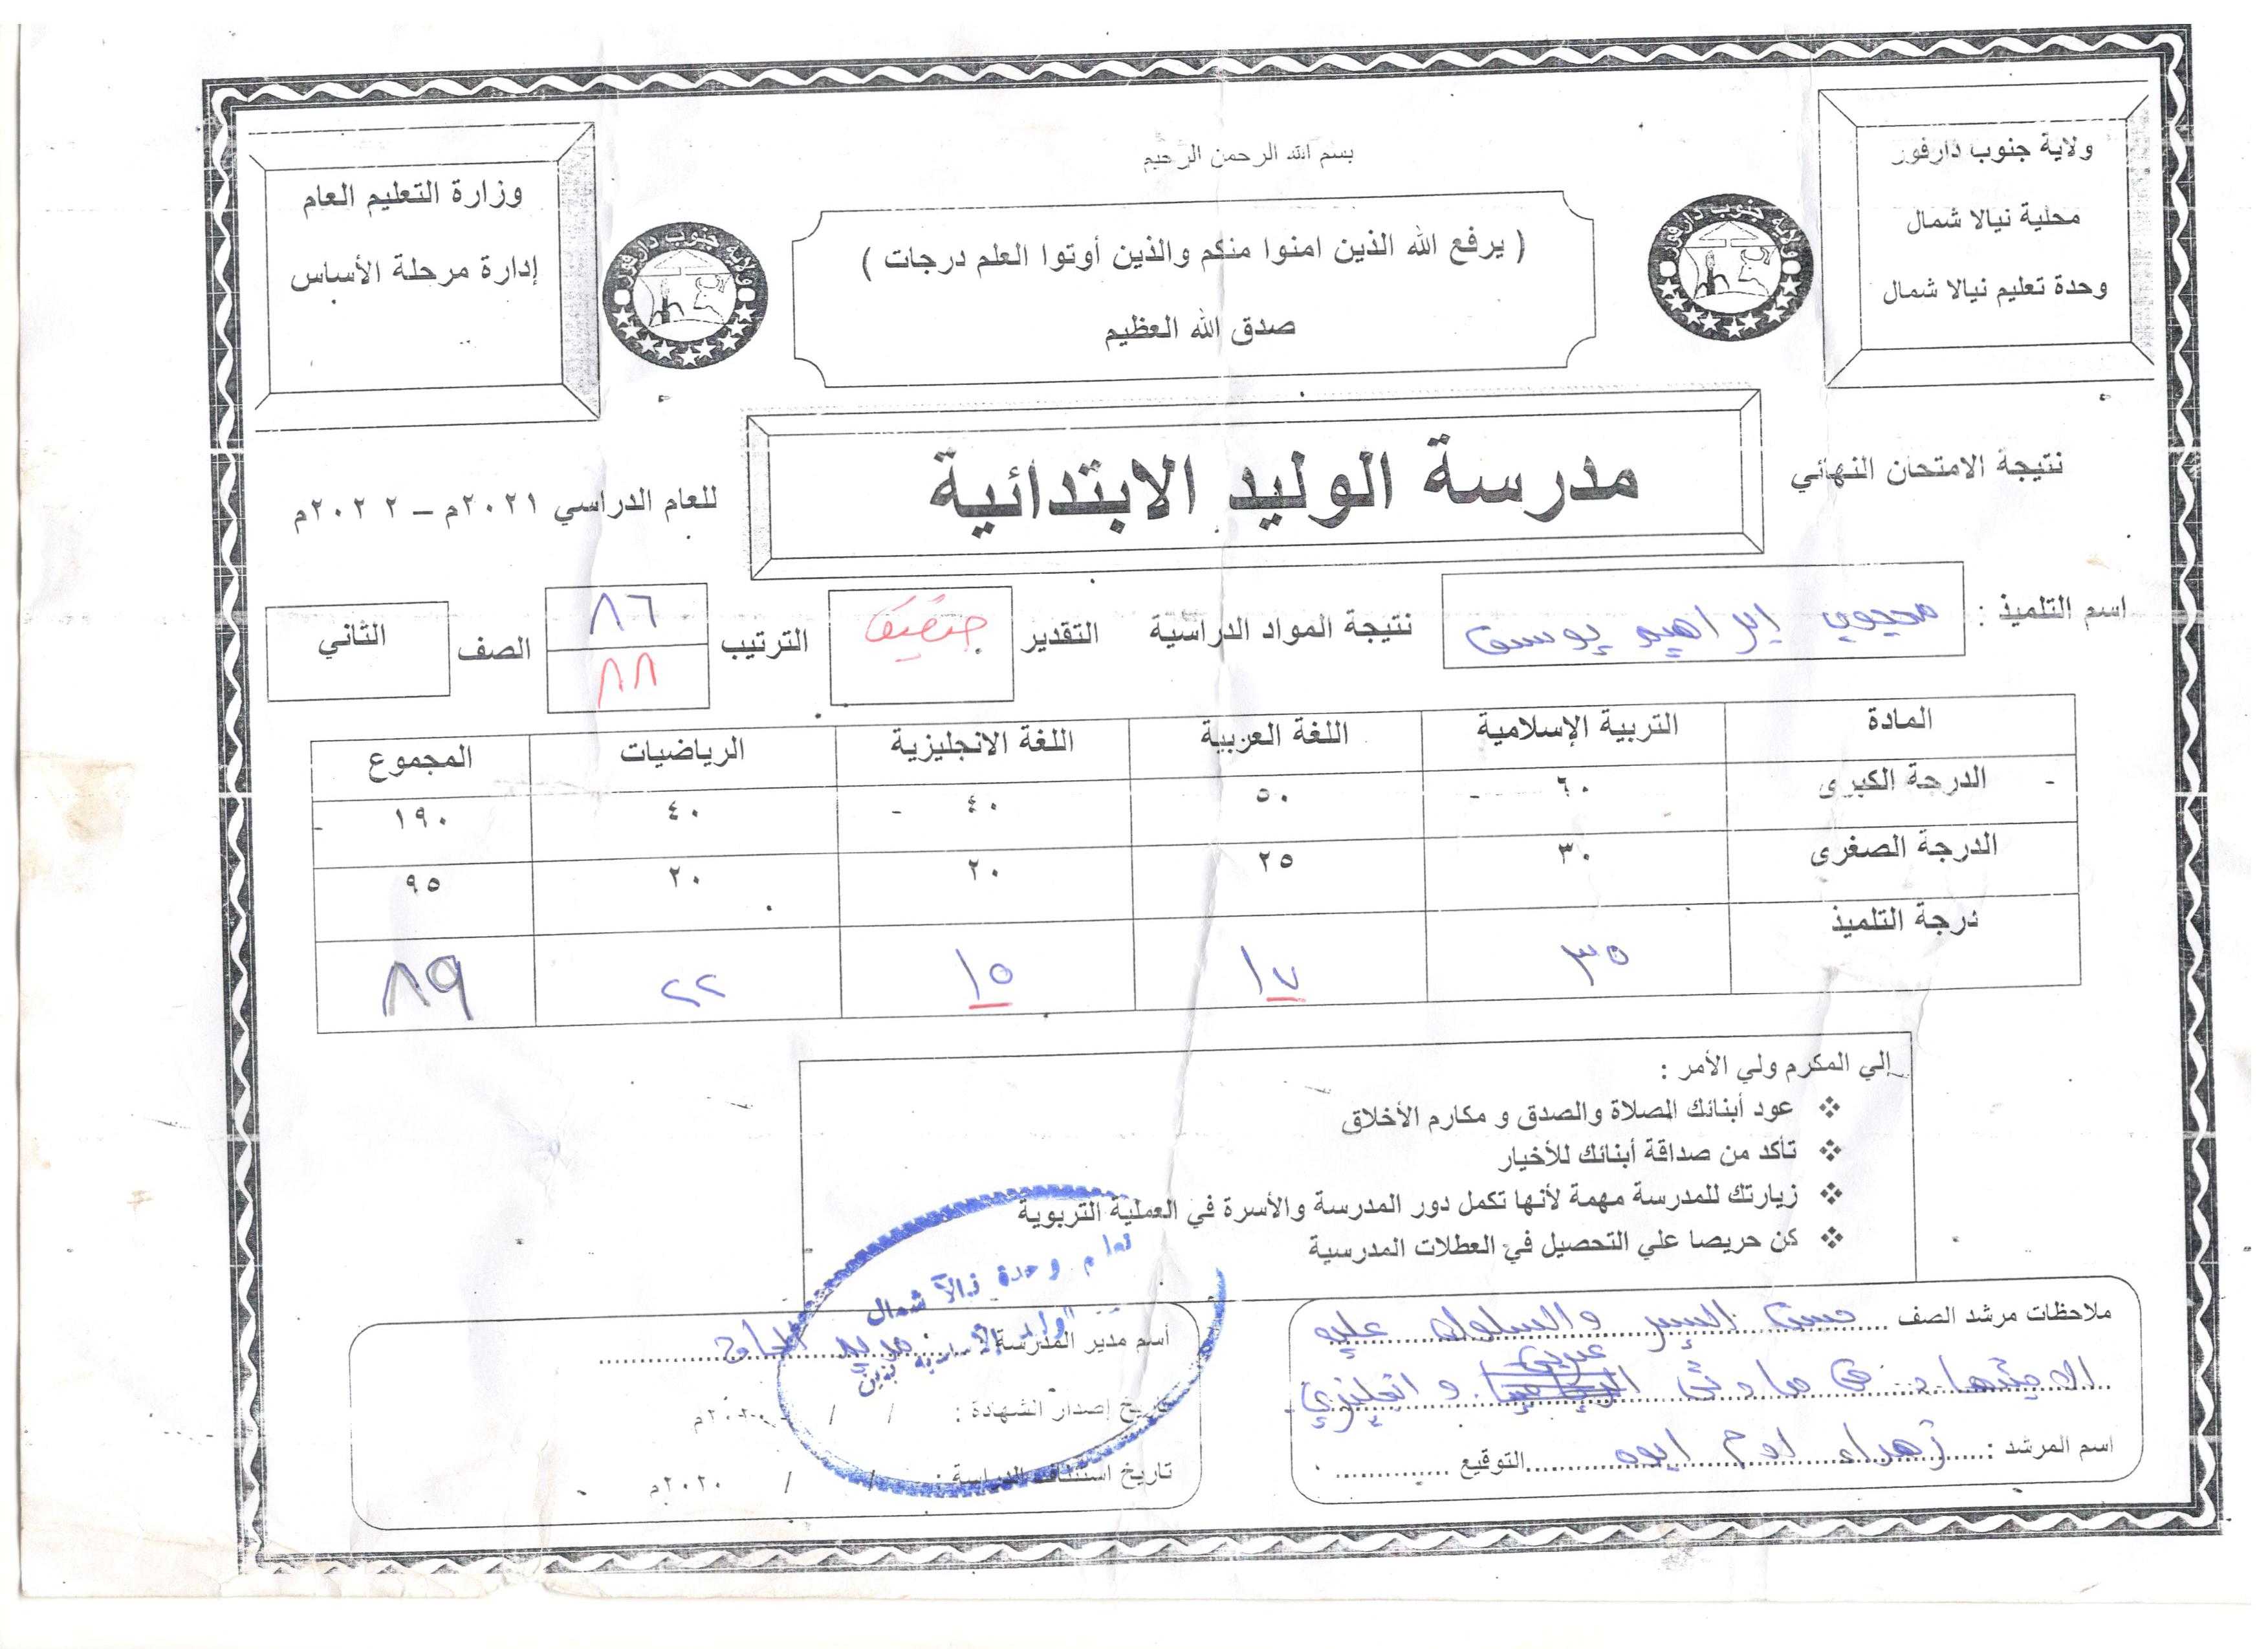 بسم الله الرحمن الرحيم
ولاية جنوب دارفور
محلية نيالا شمال
وحدة تعليم نيالا شمال
ولاية جنوب دارفور
( يرفع الله الذين امنوا منكم والذين أوتوا العلم درجات )
صدق الله العظيم
ولاية جنوب دارفور
وزارة التعليم العام
إدارة مرحلة الأساس
نتيجة الامتحان النهائي
مدرسة الوليد الابتدائية
للعام الدراسي ٢٠٢١م – ٢٠٢٢م
اسم التلميذ : ابراهيم يوسف نتيجة المواد الدراسية التقدير ضعيف الترتيب ٨٦ ٨٨ الصف الثاني
المادة التربية الإسلامية اللغة العربية اللغة الانجليزية الرياضيات المجموع
الدرجة الكبرى ٦٠ ٥٠ ٤٠ ٤٠ ١٩٠
الدرجة الصغرى ٣٠ ٢٥ ٢٠ ٢٠ ٩٥
درجة التلميذ ٣٥ ١٧ ١٥ ٢٢ ٨٩
إلي المكرم ولي الأمر :
❖ عود أبنائك الصلاة والصدق و مكارم الأخلاق
❖ تأكد من صداقة أبنائك للأخيار
❖ زيارتك للمدرسة مهمة لأنها تكمل دور المدرسة والأسرة في العملية التربوية
❖ كن حريصا علي التحصيل في العطلات المدرسية
ملاحظات مرشد الصف حسن السير والسلوك عليه
الاجتهاد في مادتي عربي و انجليزي
اسم المرشد : زهراء التوقيع
أسم مدير المدرسة
تاريخ إصدار الشهادة : / / ٢٠٢٠م
تاريخ استئناف الدراسة : / / ٢٠٢٠م
وحدة نيالا شمال